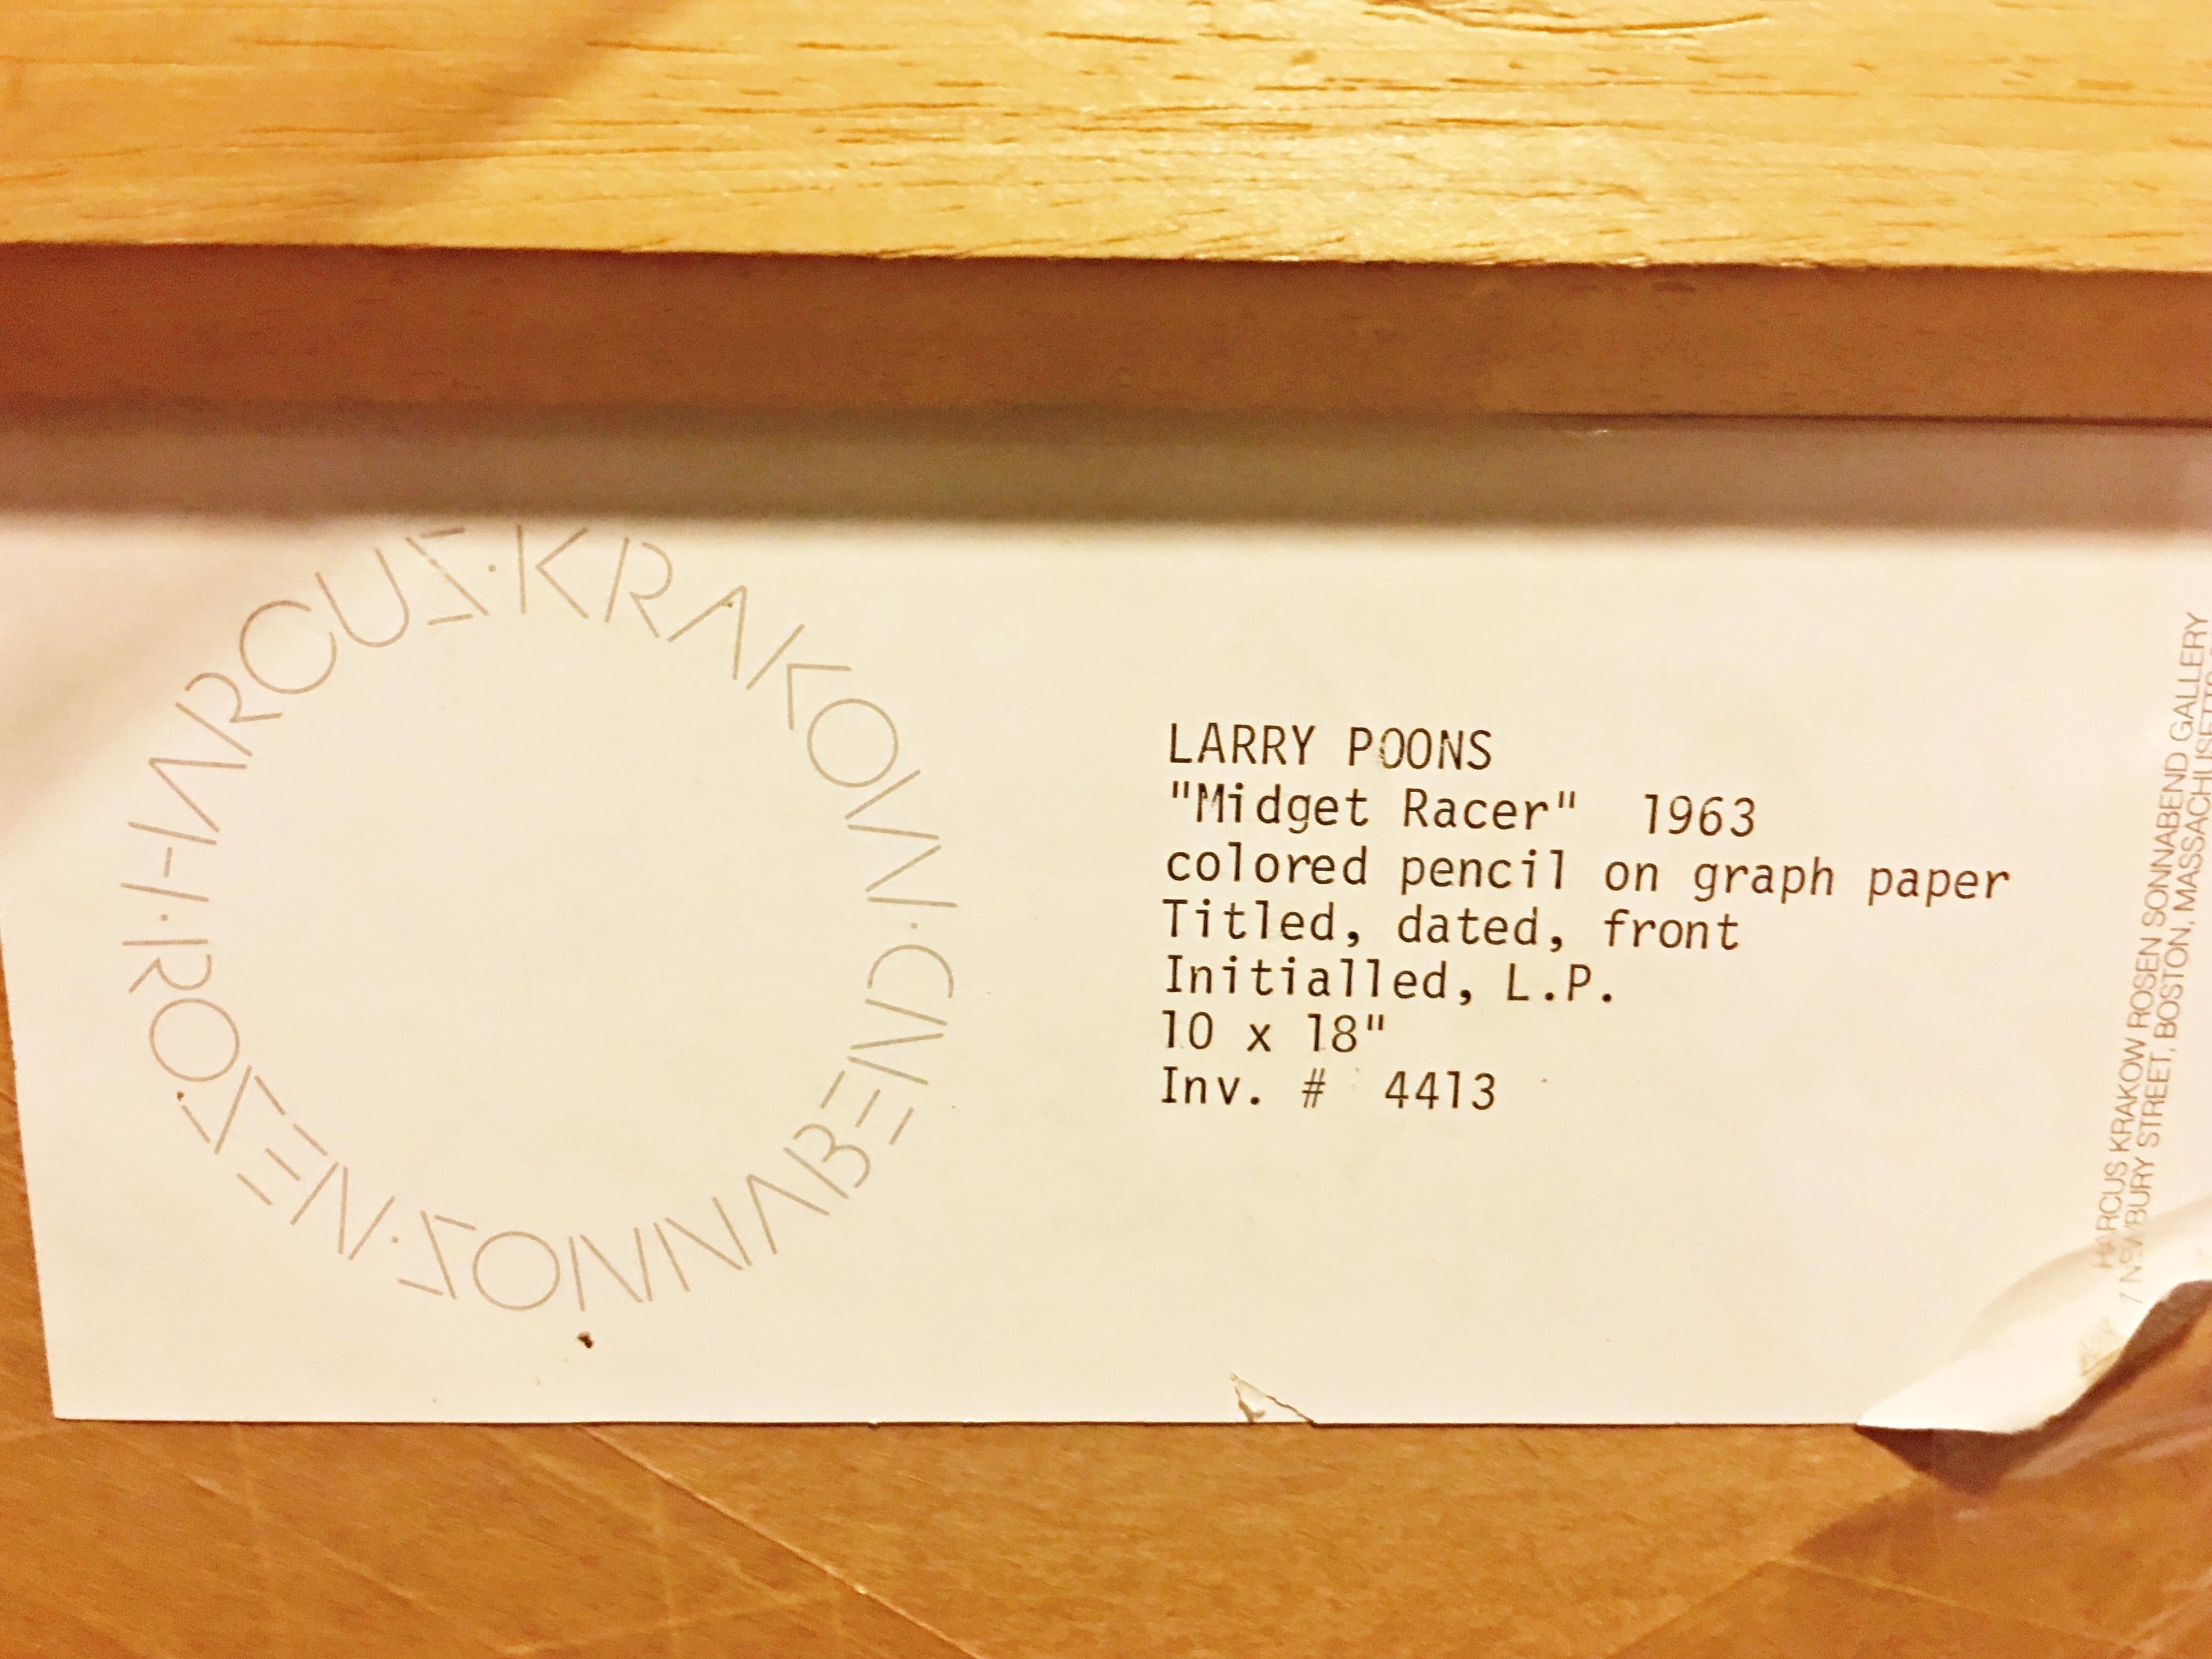 HARCUS·KRAKOW·SONNABEND·ROSEN·
LARRY POONS
"Midget Racer" 1963
colored pencil on graph paper
Titled, dated, front
Initialled, L.P.
10 x 18"
Inv. # 4413
HARCUS KRAKOW ROSEN SONNABEND GALLERY
7 NEWBURY STREET, BOSTON, MASSACHUSETTS